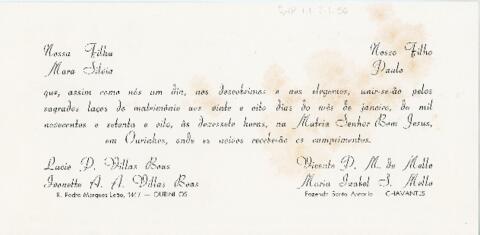 Nossa Filha
Mara Silvia
Nosso Filho
Paulo
que, assim como nós um dia, nos descobrimos e nos elegemos, unir-se-ão pelos
sagrados laços do matrimônio aos vinte e oito dias do mês de janeiro, de mil
novecentos e setenta e oito, às dezessete horas, na Matriz Senhor Bom Jesus,
em Ourinhos, onde os noivos receberão os cumprimentos.
Lucio P. Villas Boas
Ivonette A. A. Villas Boas
R. Pedro Marques Leão, - OURINHOS
Vicente P. M. de Mello
Maria Izabel S. Mello
Fazenda Santo Antonio CHAVANTES